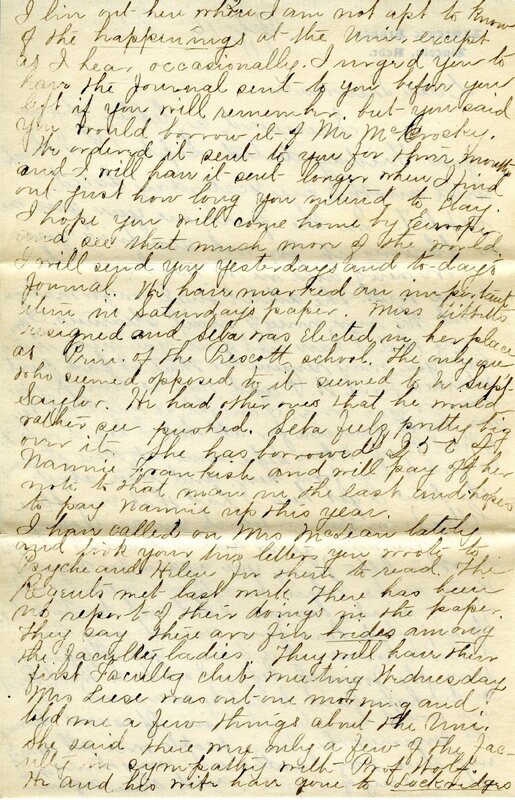 I live out here where I am not apt to know
of the happenings at the Uni. except
as I hear occasionally. I urged you to
have the Journal sent to you before you
left if you will remember, but you said
you would borrow it of Mr McCrosky.
We ordered it sent to you for three months
and I will have it sent longer when I find
out just how long you intend to stay.
I hope you will come home by Europe
and see that much more of the world
I will send you yesterdays and to-day's
Journal. We have marked an important
item in Saturdays paper. Miss
resigned and Seba was elected in her place
as Prin. of the Prescott school. The only one
who seemed opposed to it seemed to be Supt
Saylor. He had other ones that he would
rather see pushed. Seba feels pretty big
over it. She has borrowed of
Nannie Frankish and will pay off her
note to that man in the east and hopes
to pay Nannie up this year.
I have called on Mrs McLean lately
and took your two letters you wrote to
Psyche and Helen for them to read. The
Regents met last week. There has been
no report of their doings in the paper.
They say there are five brides among
the faculty ladies. They will have their
first Faculty club meeting Wednesday
Mrs Liese was out one morning and
told me a few things about the Uni.
She said there were only a few of the Fac-
ulty in sympathy with Prof. Wolf.
He and his wife have gone to Lockridges